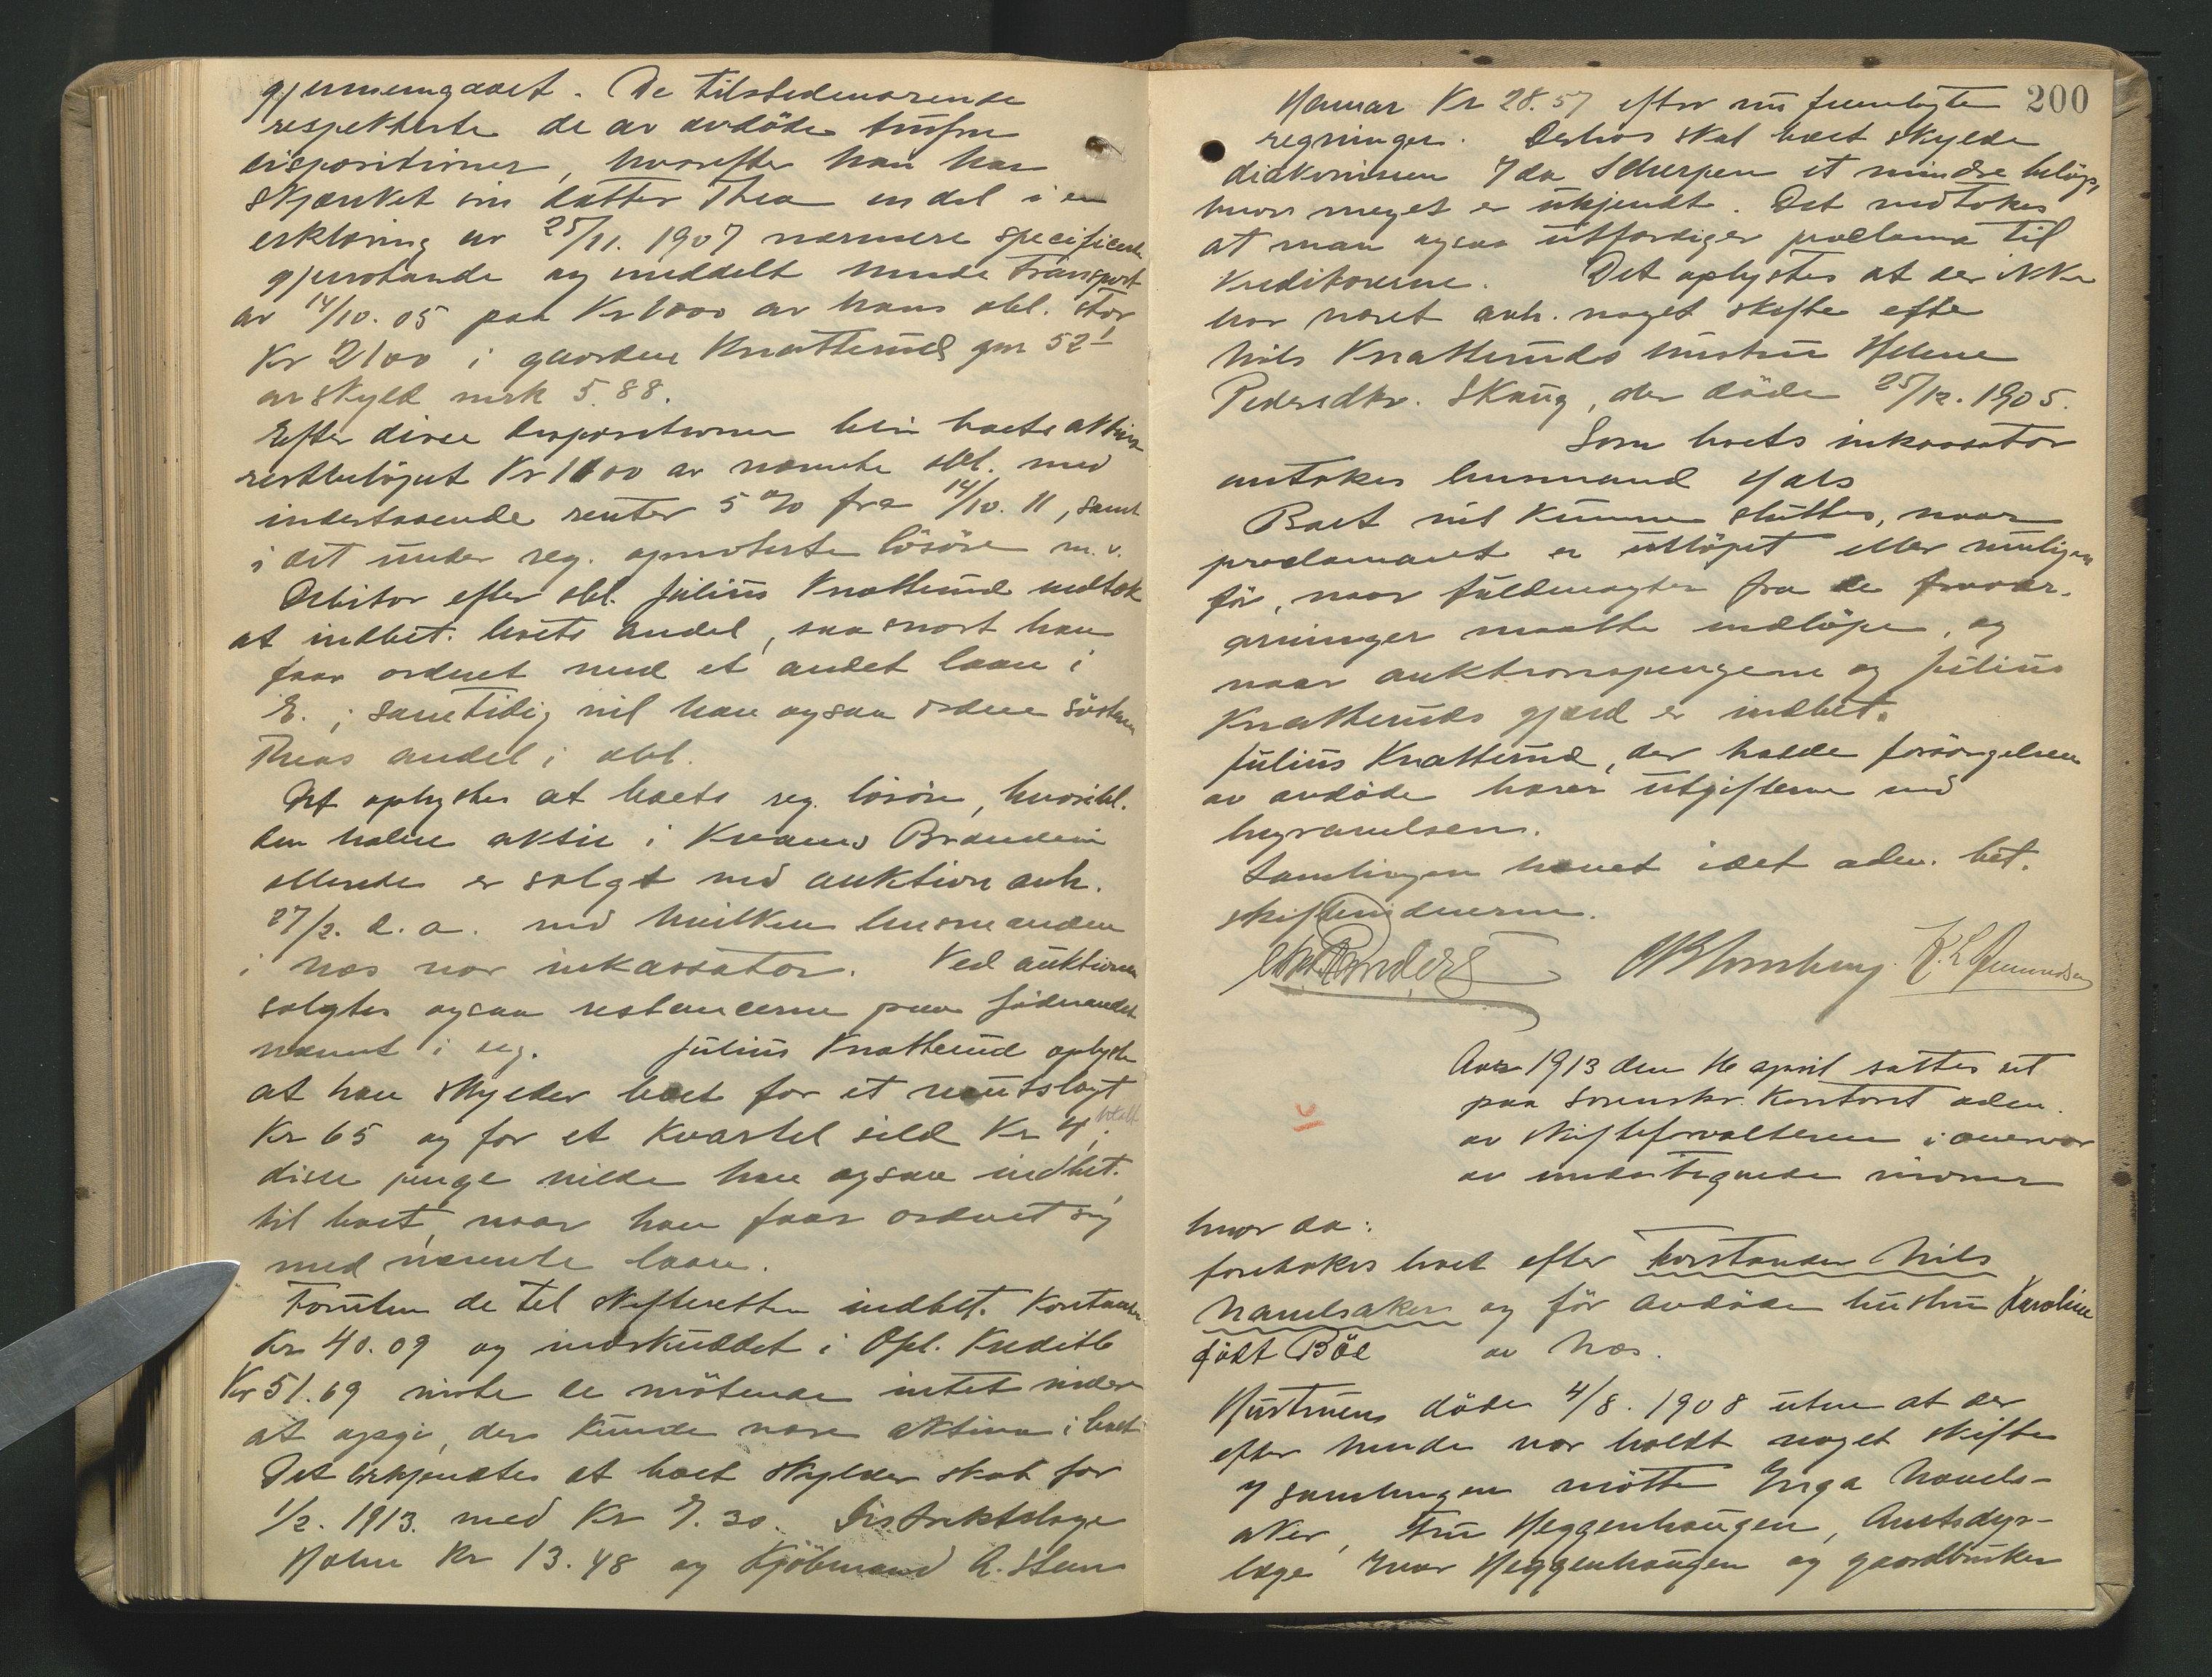 gjennemgaaet. De tilstedeværende
respekterte de av avdöde trufne
dispositioner, hvorefter han har
skjænket sin datter Thea en del i en
erklæring av 25/11. 1907 nærmere specificerte
gjenstande og meddelt hende transport
av 14/10. 05 paa Kr 1000 av hans obl. stor
Kr 2100 i gaarden Knatterud gnr 52 1
av skyld mrk 5.88.
Efter disse dispositioner blir boets aktiva
restbelöpet Kr 1100 av nævnte obl. med
indestaaende renter 5 % fra 14/10. 11, samt
i det under reg. opnoterte lösöre m. v.
Debitor efter obl. Julius Knatterud vedtok
at indbet. boets andel, saa snart han
faar ordnet med et andet laan i
E.; samtidig vil han ogsaa ordne söster
Theas andel i obl.
Det oplystes at boets reg. lösöre, hvoribl.
den halve aktie i Kvams Brænderi
allerede er solgt ved auktion avh.
27/2. d. a. ved hvilken lensmanden
i Nes var inkassator. Ved auktionen
solgtes ogsaa restancerne paa föderaadet
nævnt i reg. Julius Knatterud oplyste
at han skylder boet for et nautslagt
Kr 65 og for et kvartel sild Kr 4;
disse penge vilde han ogsaa indbet.
til boet, naar han faar ordnet sig
med nævnte laan.
Foruten de til skifteretten indbet. kontanter
Kr 40.09 og indskuddet i Opl. Kreditb
Kr 51.69 viste de mötende intet videre
at opgi, der kunde være aktiva i boet
Det erkjendtes at boet skylder skat for
1/2. 1913. med Kr 7.30. Distriktslæge
Holm Kr 13.48 og Kjöbmand A. Steen
200
Hamar Kr 28.57 efter nu fremlagte
regninger. Derhos skal boet skylde
diakonissen Ida Scherpen et mindre belöp,
hvor meget er ukjendt. Det vedtokes
at man ogsaa utfærdiger proclama til
kreditorerne. Det oplystes at der ikke
har været avh. noget skifte efter
Nils Knatteruds hustru Helene
Pedersdtr. Skaug, der döde 25/12. 1905.
Som boets inkassator
antokes lensmand Hals
Boet vil kunne sluttes, naar
proclamaet er utlöpet eller muligens
för, naar fuldmagter fra de fravær-
arvinger maatte indlöpe, og
naar auktionspengene og Julius
Knatteruds gjæld er indbet.
Julius Knatterud, der hadde forsörgelsen
av avdöde bærer utgifterne ved
begravelsen.
Samlingen hævet idet adm. bet.
skiftevidnerne.
Aar 1913 den 16 april sattes ret
paa Sorenskr. Kontoret adm.
av skifteforvalteren i overvær
av undertegnede vidner
hvor da:
foretokes boet efter Forstander Nils
Navelsaker og för avdöde hustru Karoline
född Böe av Nes.
Hustruen döde 4/8. 1908 uten at der
efter hende var holdt noget skifte
I samlingen mötte Inga Navels-
aker, Fru Heggenhaugen, Amtsdyr-
læge Ivar Heggenhaugen og gaardbruker